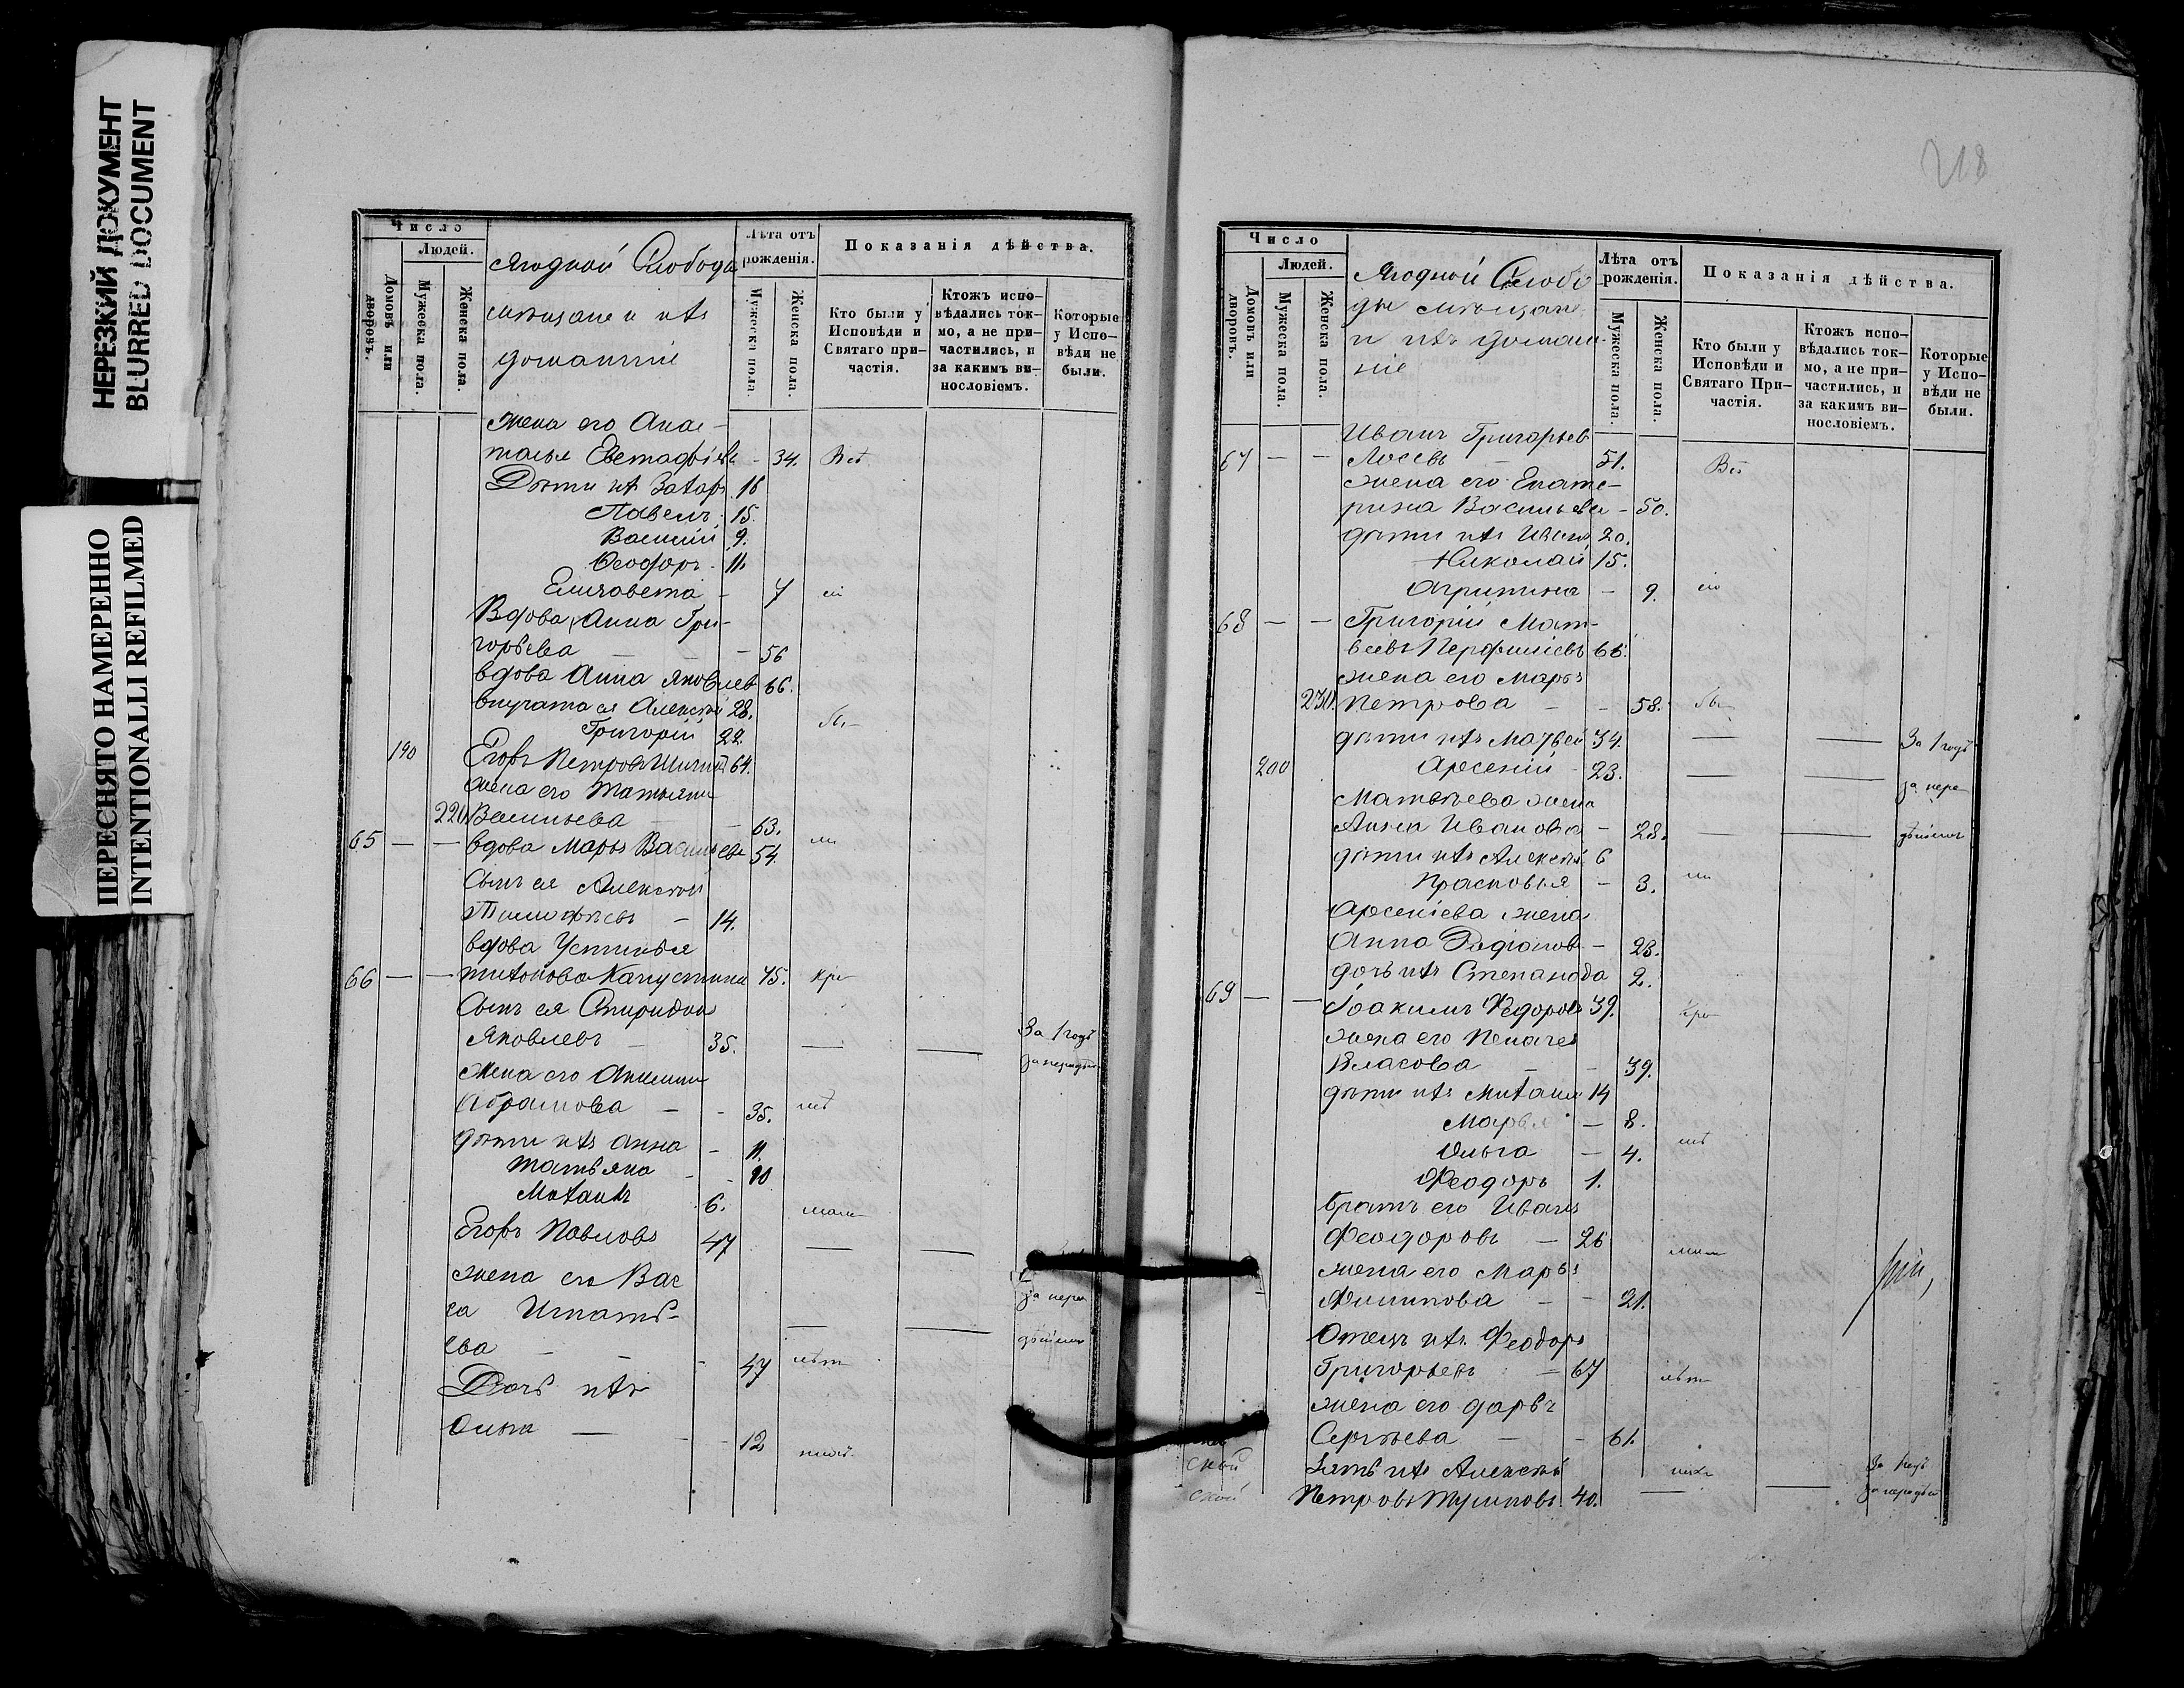 НЕРЕЗКИЙ ДОКУМЕНТ
BLURRED DOCUMENT
ПЕРЕСНЯТО НАМЕРЕННО
INTENTIONALLI REFILMED
Число
Домовъ или дворовъ.
Людей.
Мужеска пола.
Женска пола.
Ягодной Слободы
мѣщане и ихъ
домашніе
Лѣта отъ рожденія.
Мужеска пола
Женска пола.
Показанія дѣйства.
Кто были у Исповѣди и Святаго причастія.
Ктожъ исповѣдались токмо, а не причастились, и за какимъ винословіемъ.
Которые у Исповѣди не были.
жена его Анас-
тасья Евстафіева - 34. Всѣ
Дѣти ихъ Захаръ 18
Павелъ 15.
Василій 9.
Феодоръ 11.
Елизавета - 7
Вдова Анна Гри-
горьева - 56
вдова Анна Яковлев 66.
внучата ея Алексѣй 28.
Григорій 22.
190 Егоръ Петровъ 64.
жена его Татьяна
220 Васильева - 63.
65 — — вдова Марья Васильева 54.
Сынъ ея Алексѣй
Тимофѣевъ - 14.
вдова Устинья
66 — — Тихонова Капустина 75.
Сынъ ея Спиридонъ
Яковлевъ - 35. — — За 1 годъ
жена его Акилина
Абрамова - - 35.
дѣти ихъ Анна - 11.
Татьяна - 10
Михаилъ 6.
Егоръ Павловъ 47 — —
жена его Вас
са Игнать-
ева - - 47 — —
Дочь ихъ
Ольга — - - 12
218
Число
Домовъ или дворовъ.
Людей.
Мужеска пола.
Женска пола.
Ягодной Слобо
ды мѣщане
и ихъ домаш-
ніе
Лѣта отъ рожденія.
Мужеска пола.
Женска пола.
Показанія дѣйства.
Кто были у Исповѣди и Святаго Причастія.
Ктожъ исповѣдались токмо, а не причастились, и за какимъ винословіемъ.
Которые у Исповѣди не были.
Иванъ Григорьев
67 — — Лосевъ 51. Всѣ
жена его Екате-
рина Васильева - 50.
дѣти ихъ Иванъ 20.
Николай 15.
Агрипина - 9.
68 — — Григорій Мат-
вѣевъ Перфильевъ 66.
жена его Марья
230. Петрова - - 58.
дѣти ихъ Матвей 34. — — За 1 годъ
200 Арсеній 23. — —
Матвѣева жена
Анна Иванова - 28. — —
дѣти ихъ Алексѣй 6
Прасковья - 3.
Арсеніева жена
Анна Родіонов - 23.
дочь ихъ Степанида 2.
69 — — Іоакимъ Федоровъ 39.
жена его Пелагея
Власова - - 39.
дѣти ихъ Михаилъ 14
Марья — 8.
Ольга — 4.
Феодоръ 1.
братъ его Иванъ
Феодоровъ - 26
жена его Марья
Филипова - - 21.
Отецъ ихъ Феодоръ
Григорьевъ - 67
жена его Дарья
Сергѣева - - 61.
Зять ихъ Алексѣй За 1 годъ
Петровъ 40. — —